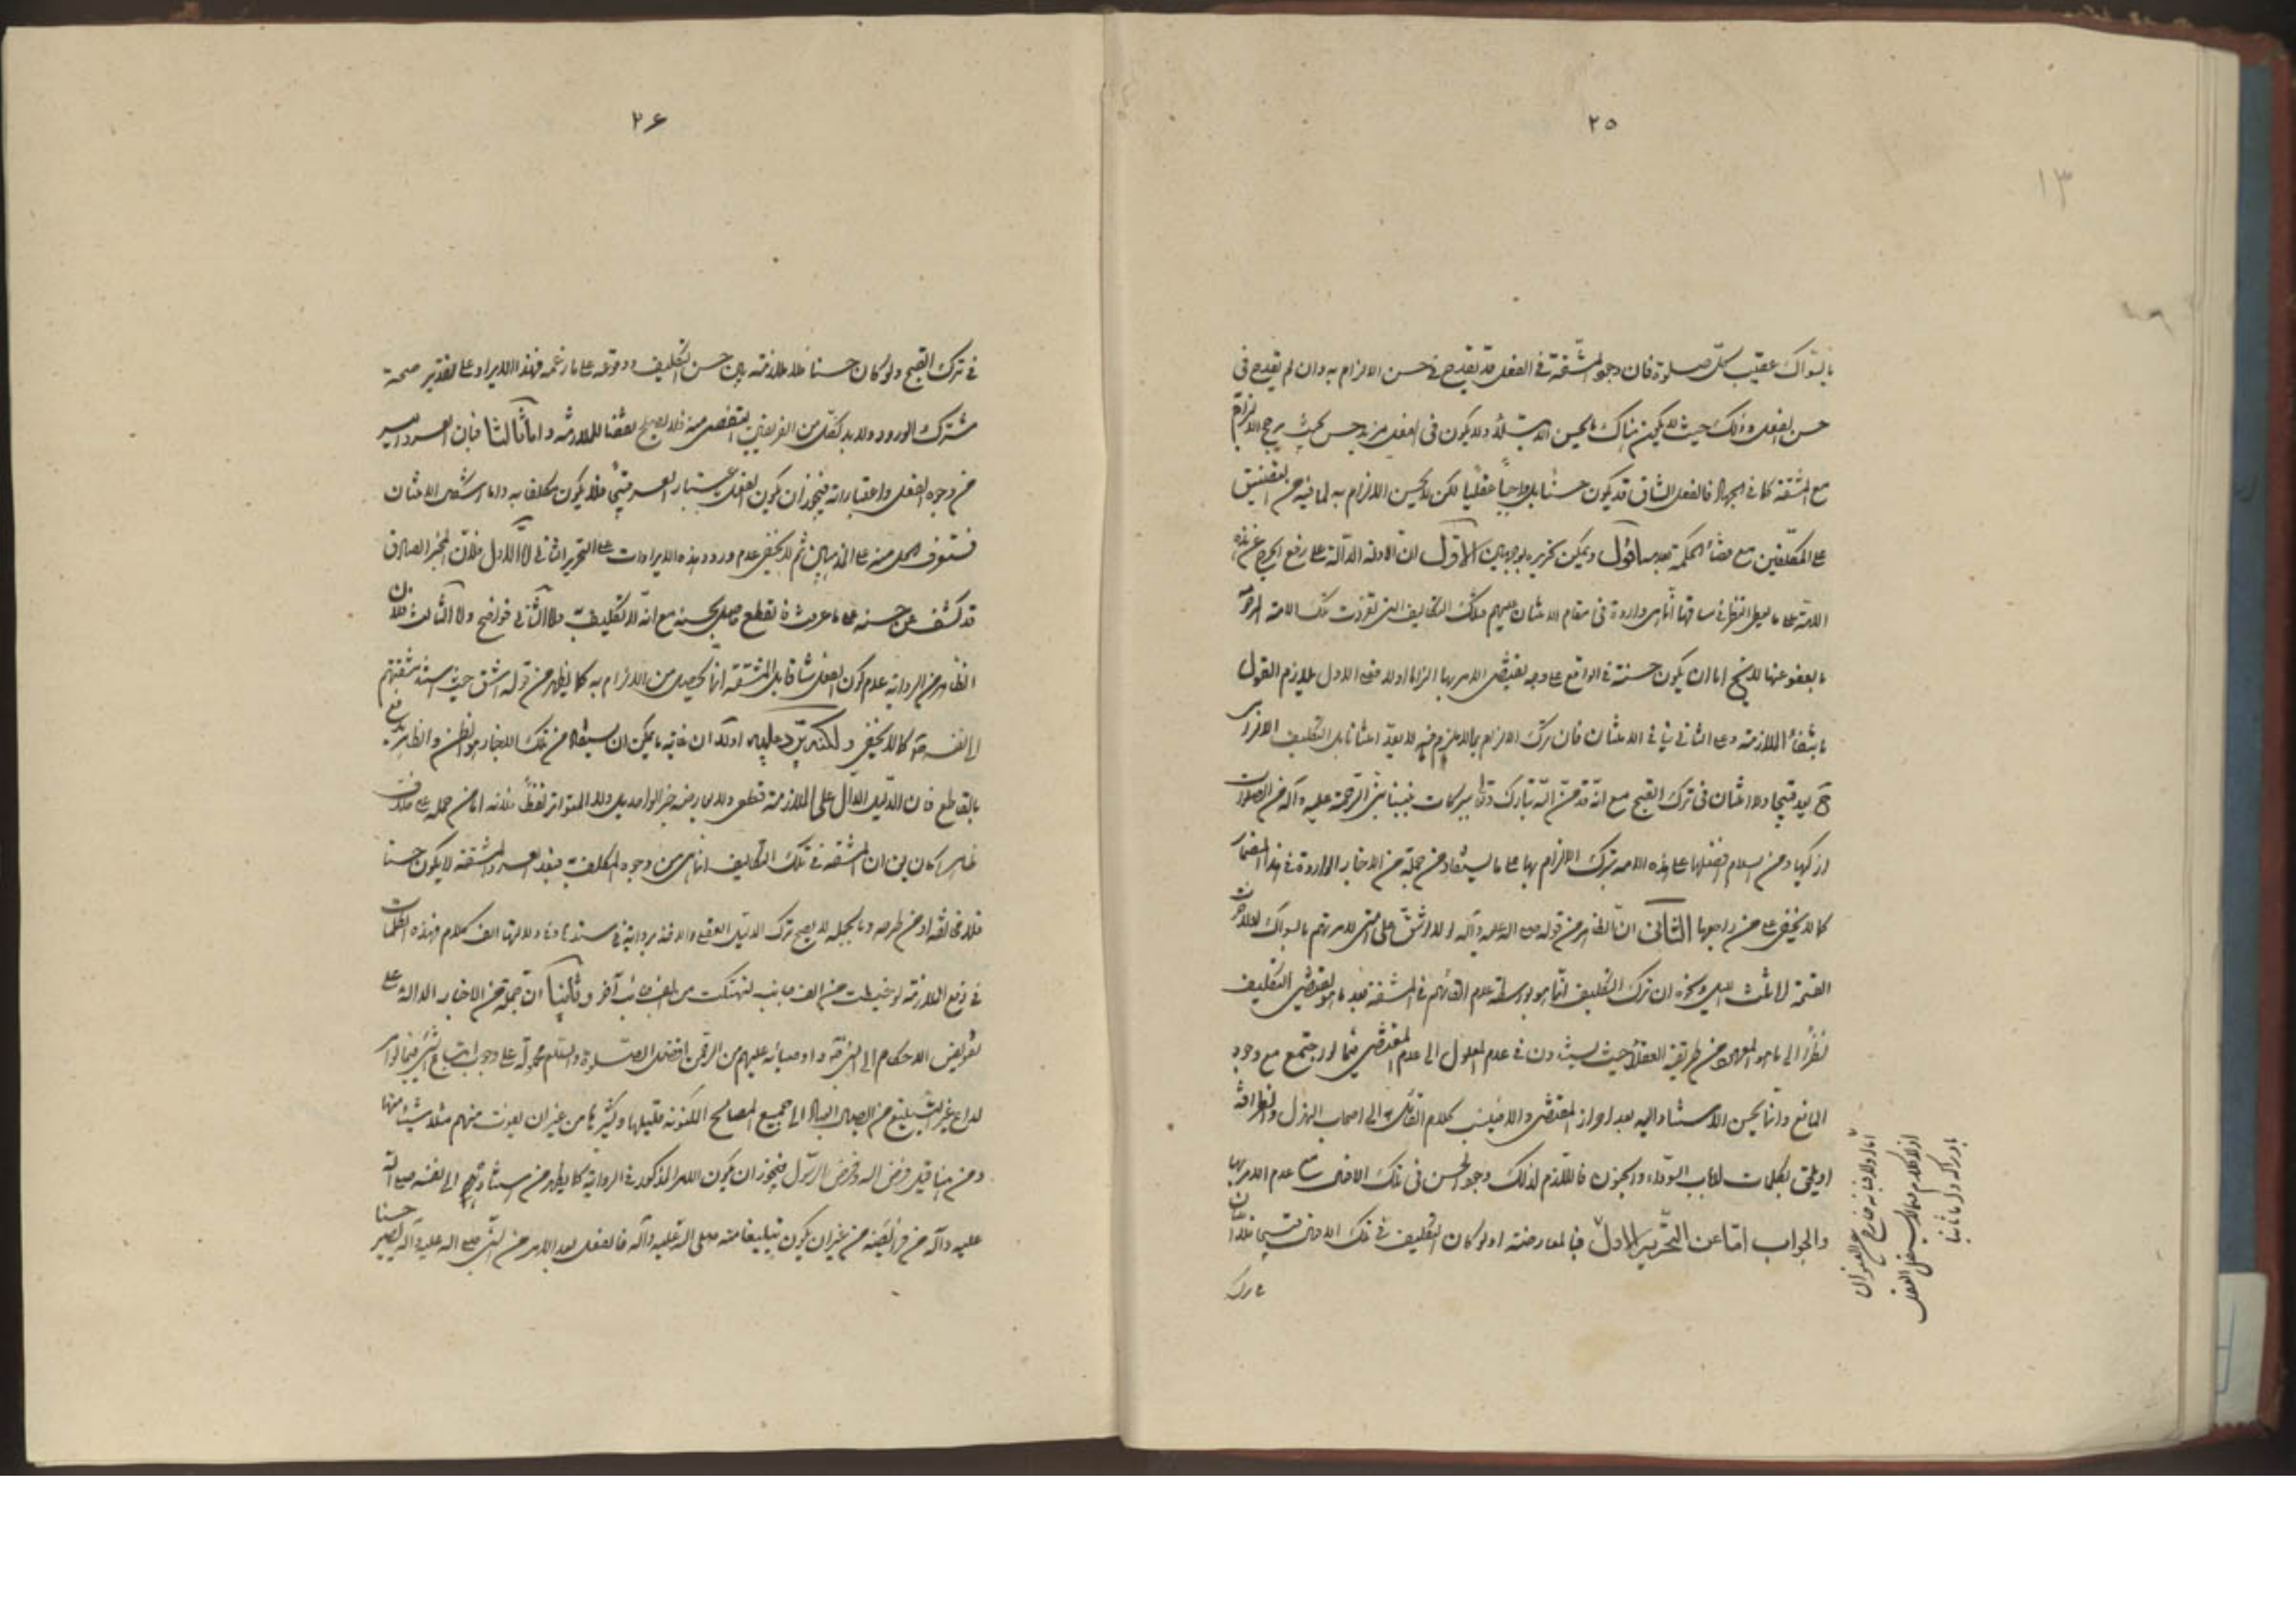 ٢٥
١٣
بالسواك عقيب كل صلوة فان وجود المشقة في الفعل قد يقدح في حسن الالزام به وان لم يقدح في
حسن الفعل وذلك حيث لا يكون هناك ما يحسن الابتلاء ولا يكون في الفعل مزيد حسن بحيث يرجح الالزام
مع المشقة كما في الجهاد فالفعل الشاق قد يكون حسنا بل واجباً عقلياً لكن لا يحسن الالزام به لما فيه من التضييق
على المكلفين مع قضاء الحكمة بعدمه اقول ويمكن تحريره بوجهين الاول ان الادلة الدالة على رفع الحرج عن هذه
الامة على ما يعطى النظر في سياقها انما هي واردة في مقام الامتنان عليهم وتلك التكاليف التي تفردت تلك الامة المرحومة
بالعفو عنها لا يخ اما ان يكون حسنة في الواقع على وجه يقتضى الامر بها الزاما اولا فعلى الاول يلزم القول
بانتفاء الملازمة وعلى الثاني ينافي الامتنان فان ترك الالزام بما لا يلزم فيه لا يعد امتنانا بل التكليف الالزامى
ح يعد قبيحا ولا امتنان في ترك القبيح مع انه قد من الله تبارك وتعالى ببركات نبينا نبي الرحمة عليه وآله من الصلوات
ازكيها ومن السلام افضلها على هذه الامة بترك الالزام بها على ما يستفاد من جملة من الاخبار الواردة في هذا المضمار
كما لا يخفى على من راجعها الثاني ان الظاهر من قوله صلى الله عليه وآله لولا ان اشق على امتى لامرتهم بالسواك ولاخرت
العتمة الى ثلث الليل ونحوه ان ترك التكليف انما هو بواسطة عدم القائهم في المشقة بعد ما هو المقتضى للتكليف
نظراً الى ما هو المعهود من طريقة العقلاء حيث لا يستندون في عدم المعلول الى عدم المقتضى فيما لو اجتمع مع وجود
المانع وانما يحسن الاستناد اليه بعد احراز المقتضى والا فينسب كلام القائل به الى اصحاب الهزل والظرافة
او يلحق بكلمات ارباب السوداء والجنون فاللازم لذلك وجود الحسن في تلك الافعال مع عدم الامر بها
والجواب اما عن التحرير الاول فبالمعارضة اولا لو كان التكليف في تلك الافعال قبيحا فلا امتنان
٢٦
في ترك القبيح ولو كان حسنا فلا ملازمة بين حسن التكليف ووقوعه على ما زعمه فهذا الايراد على تقدير صحته
مشترك الورود ولا بد لكل من الفريقين التفصى منه فلا يصلح نقضا للملازمة واما ثالثا فبان العسر واليسر
من وجوه الفعل واعتباراته فيجوز ان يكون الفعل باعتبار العسر قبيحا فلا يكون مكلفا به واما استشعار الامتنان
فستعرف الحل منه على المذهبين ثم لا يخفى عدم ورود هذه الايرادات على التحرير الثاني اما الاول فلان المخبر الصادق
قد كشف عن حسنه على ما عرفت فالقطع حاصل بحسنه مع انه لا تكليف واما الثاني فواضح واما الثالث فلان
الظاهر من الرواية عدم كون الفعل شاقا بل المشقة انما تحصل من الالزام به كما يظهر من قوله اشق حيث اسند مشقتهم
الى نفسه كما لا يخفى ولكنه يرد عليه اولا ان غاية ما يمكن ان يستفاد من تلك الاخبار هو الظن والظن لا يدفع
بالقاطع فان الدليل الدال على الملازمة قطعى ولا يعارضه خبر الواحد بل ولا المتواتر لفظاً فلا بد اما من حمله على خلاف
ظاهره كأن بين ان المشقة في تلك التكاليف انما هي من وجوه المكلف به فبعد العسر والمشقة لا يكون حسنا
فلا مخالفة او من طرحه وبالجملة لا يصح ترك الدليل العقلى والاخذ برواية في سندها ودلالتها الف كلام وهذه الكلمات
في دفع الملازمة لو خيطت من الف جانب لتهتكت من الف جانب آخر وثانيا ان جملة من الاخبار الدالة على
تفويض الاحكام الى النبي واوصيائه عليهم من الرحمن افضل الصلوة والسلام محمولة على وجوب اتباع النبي فيما لو امر
لداع غير التبليغ من ايصال العباد الى جميع المصالح المكنونة قليلها وكثيرها من غير ان يفوت منهم مثلا شيئا منها
ومن هنا قيل فرض الله وفرض الرسول فيجوز ان يكون الامر المذكور في الرواية كما يظهر من اسناده الى نفسه صلى الله
عليه وآله من فرائضه من غير ان يكون تبليغا منه صلى الله عليه وآله فالفعل بعد الامر من النبي صلى الله عليه وآله يصير حسنا